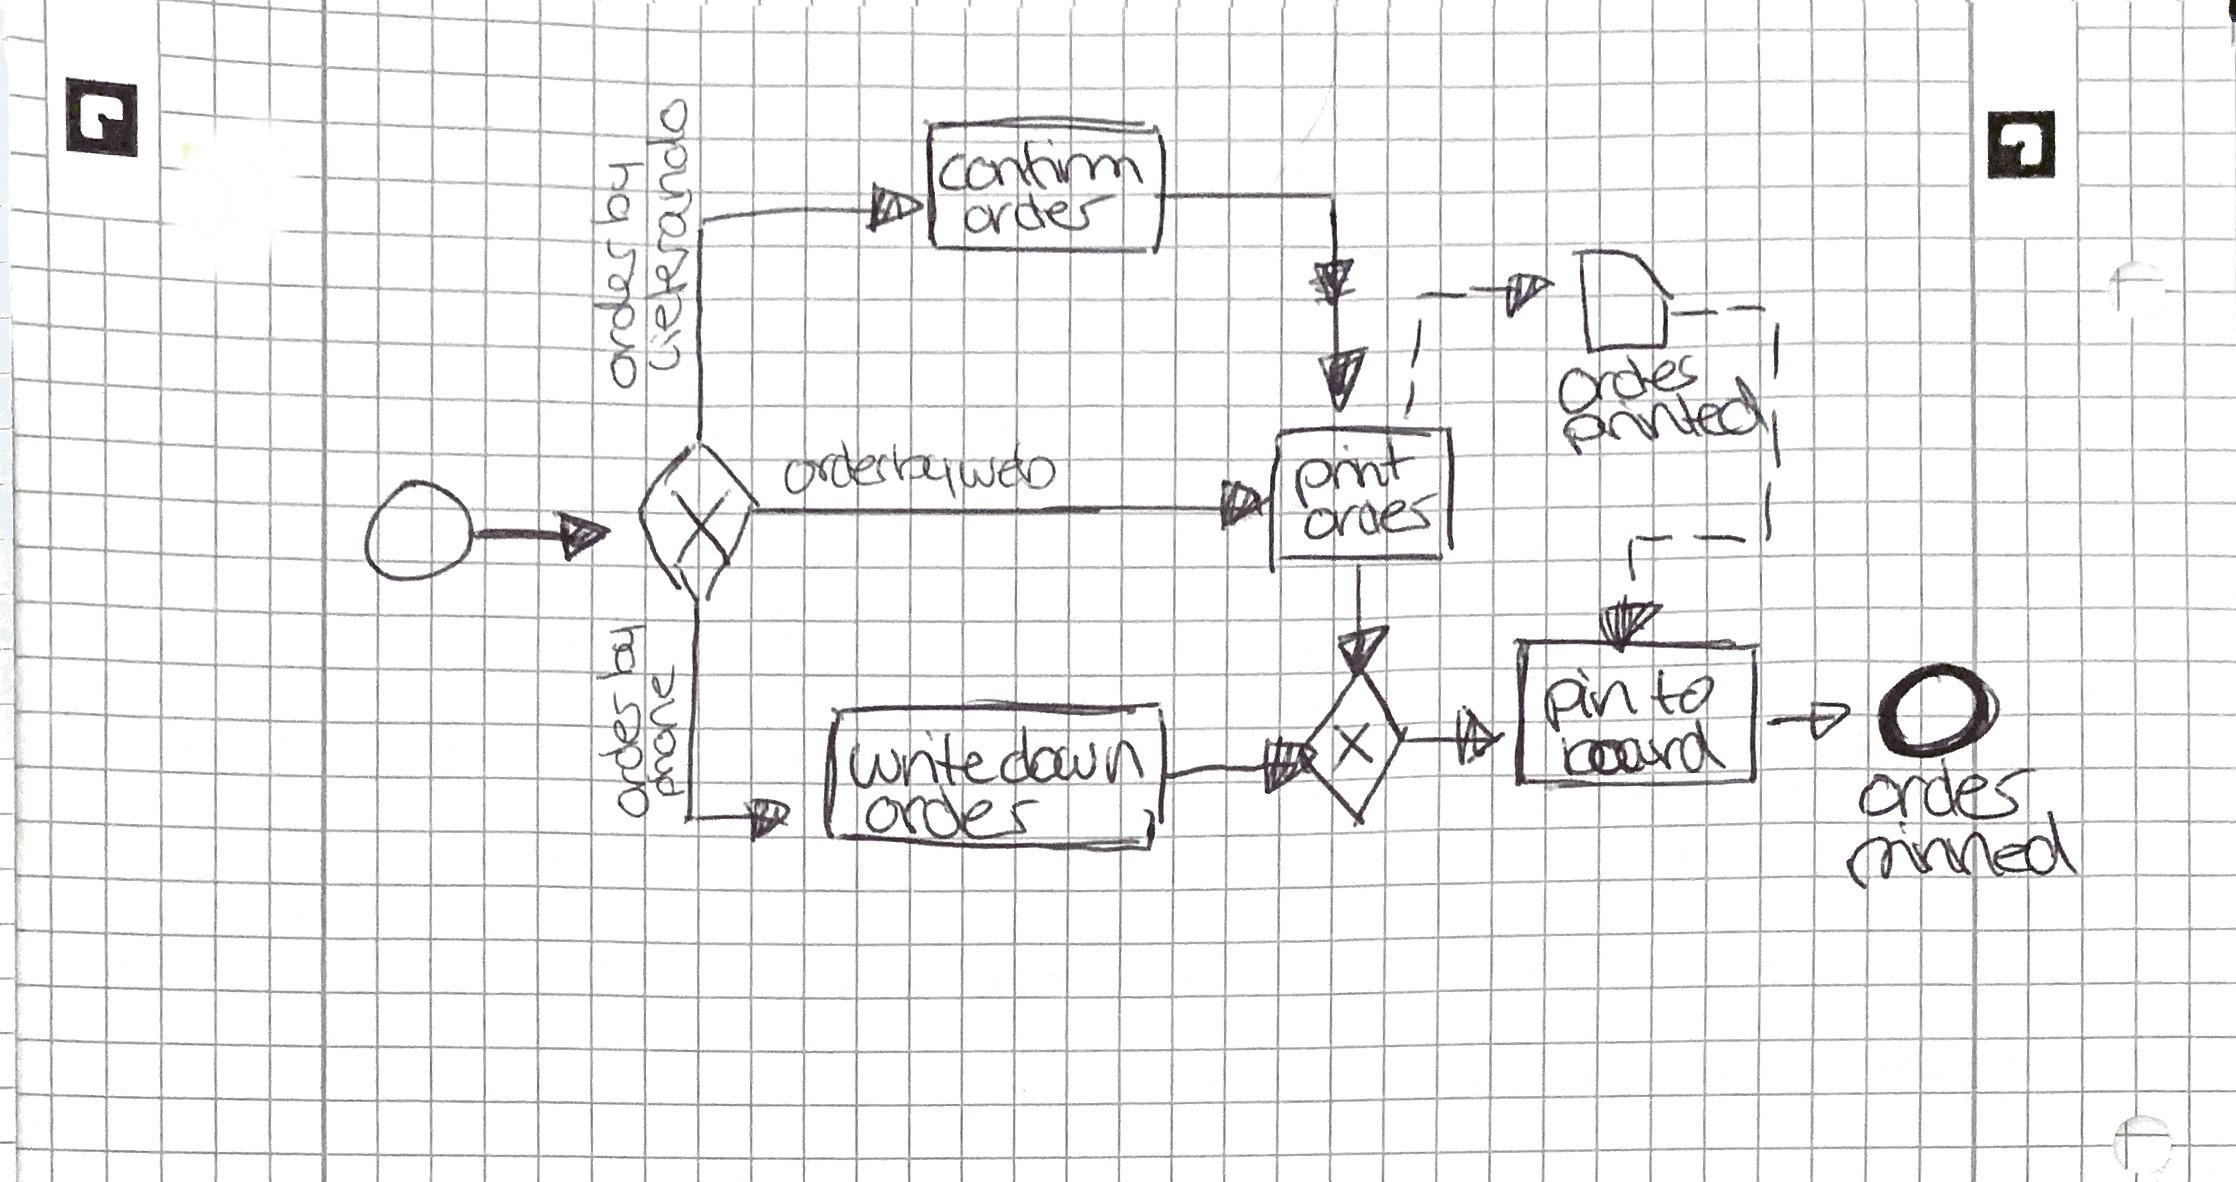 order by
Lieferando
confirm
order
order by web
print
order
order
printed
order by
phone
write down
order
pin to
board
order
pinned
X
X